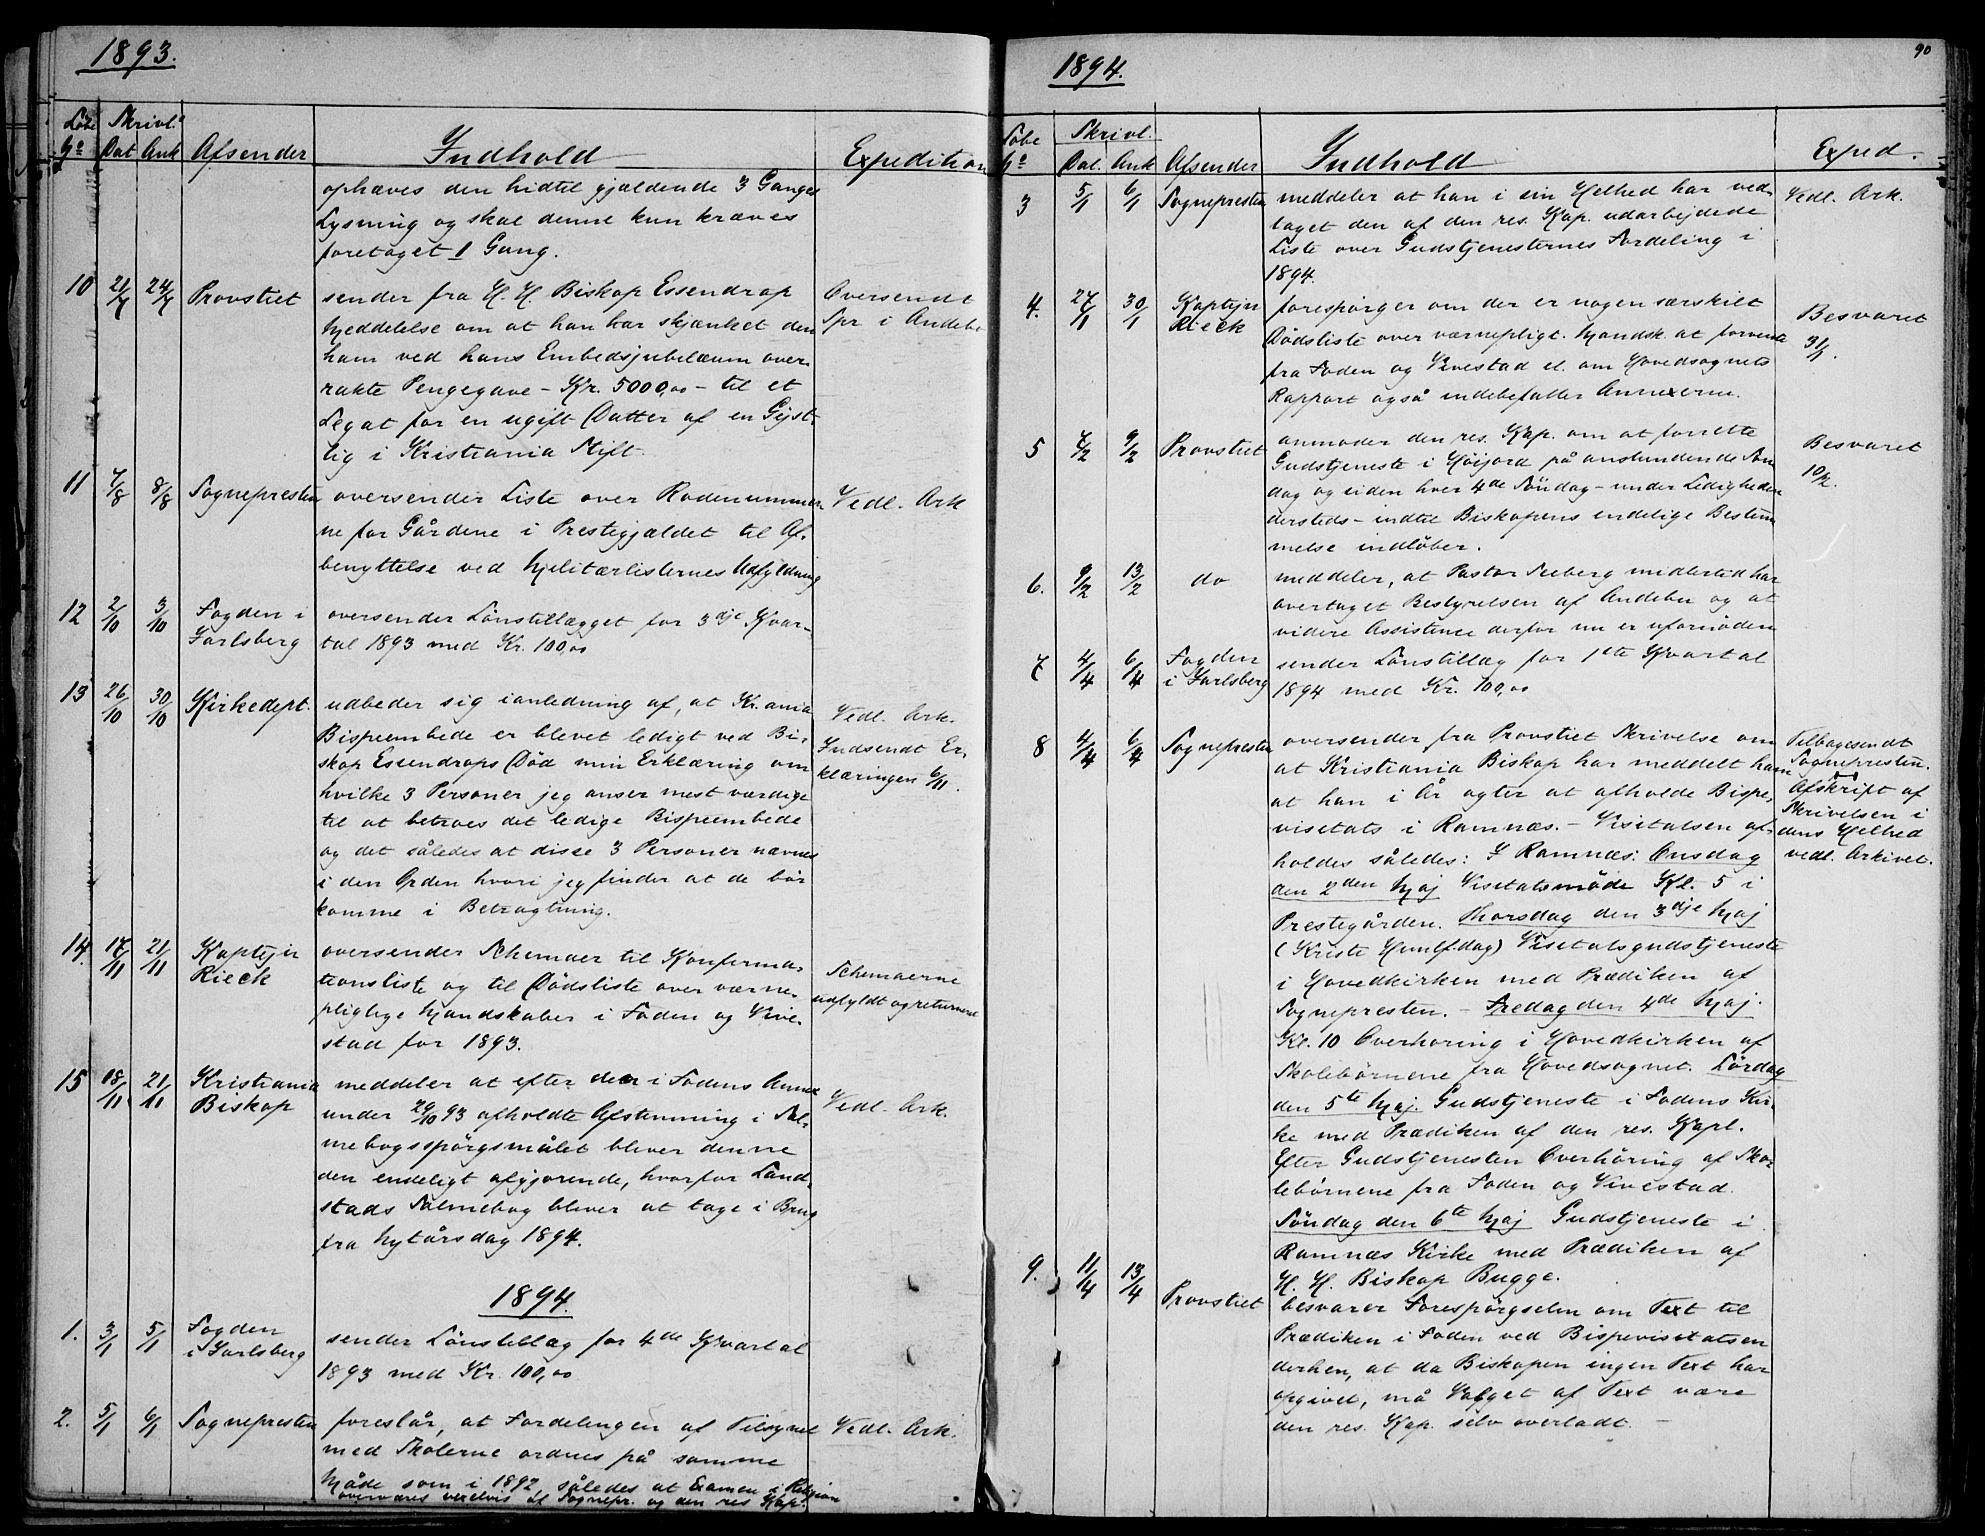 1893.
Løbe Skrivl.
No Dat Ank Afsender Indhold Expedition
ophæves den hidtil gjældende 3 Ganges
Lysning og skal denne kun kræves
foretaget 1 Gang.
10 21/7 24/7 Provstiet sender fra H. H. Biskop Essendrop Oversendt
Meddelelse om at han har skjænket den Spr i Andebu
ham ved hans Embedsjubelæum over-
rakte Pengegave - Kr. 5000,00 - til et
Legat for en ugift Datter af en Gejst-
lig i Kristiania Stift.
11 7/8 8/8 Sognepresten oversender Liste over Rodenummer- Vedl. Ark
ne for Gårdene i Prestegjældet til Af-
benyttelse ved Militærlisternes Udfyldning
12 2/10 3/10 Fogden i oversender Lönstillægget for 3dje Kvar-
Jarlsberg tal 1893 med Kr. 100,00
13 26/10 30/10 Kirkedept. udbeder sig i anledning af, at Kr.ania Vedl. Ark.
Bispeembede er blevet ledigt ved Bi- Indsendt Er-
skop Essendrops Död min Erklæring om klæringen 6/11.
hvilke 3 Personer jeg anser mest værdige
til at betroes det ledige Bispeembede
og det således at disse 3 Personer nævnes
i den Orden hvori jeg finder at de bör
komme i Betragtning.
14. 17/11 21/11 Kaptejn oversender Schemaer til Konfirma-
Rieck tionsliste og til Dödsliste over værne- Schemaerne
pligtige Mandskaber i Foden og Vive- udfyldt og returneret
stad for 1893.
15 18/11 21/11 Kristiania meddeler at efter den i Fodens Annex
Biskop under 29/10 93 afholdte Afstemning i Sal- Vedl. Ark.
mebogsspörgsmålet bliver denne
den endeligt afgjorende, hvorfor Land-
stads Salmebog bliver at tage i Brug
fra Nytårsdag 1894.
1894.
1. 3/1 5/1 Fogden sender Lönstillæg for 4de Kvartal
i Jarlsberg 1893 med Kr. 100,00
2. 5/1 6/1 Sognepresten foreslår, at Fordelingen af Tilsynet Vedl. Ark.
med Skolerne ordnes på samme
Måde som i 1892, således at Examen i Religion
overværes vexelvis af Sognepr. og den res Kap.
1894. 90
Løbe Skrivl.
No Dat. Ank Afsender Indhold Exped.
3 5/1 6/1 Sognepresten meddeler at han i sin Helhed har ved- Vedl. Ark.
taget den af den res. Kap. udarbejdede
Liste over Gudstjenesternes Fordeling i
1894.
4. 27/1 30/1 Kaptejn forespörger om der er nogen særskilt Besvaret
Rieck Dödsliste over værnepligt. Mandsk. at forvente 31/1.
fra Foden og Vivestad el. om Hovedsognets
Rapport også indebefatter Annexerne.
5 7/2 9/2 Provstiet anmoder den res. Kap. om at forrette Besvaret
Gudstjeneste i Höijord på anstundende Søn- 10/2.
dag og siden hver 4de Söndag - under Ledigheden
dersteds - indtil Biskopens endelige Bestem-
melse indlöber.
6. 9/2 13/2 do meddeler, at Pastor Seeberg midlertid har
overtaget Bestyrelsen af Andebu og at
videre Assistence derfor nu er ufornöden
7 4/4 6/4 Fogden sender Lönstillæg for 1ste Kvartal
i Jarlsberg 1894 med Kr. 100,00
8 4/4 6/4 Sognepresten oversender fra Provstiet Skrivelse om Tilbagesendt
at Kristiania Biskop har meddelt ham Sognepresten.
at han i År agter at afholde Bispe- Afskript af
visetats i Ramnæs. - Visitatsen af- Skrivelsen i
holdes således: I Ramnæs: Onsdag dens Helhed
den 2den Maj Visetatsmöde Kl. 5 i vedl. Arkivet.
Prestegården. Thorsdag den 3dje Maj
(Kriste Himlfdag) Visetatsgudstjeneste
i Hovedkirken med Prædiken af
Sognepresten. - Fredag den 4de Maj.
Kl. 10 Overhöring i Hovedkirken af
Skolebörnene fra Hovedsognet. Lördag
den 5te Maj. Gudstjeneste i Fodens Kir-
ke med Prædiken af den res. Kapl.
Efter Gudstjenesten Overhöring af Sko-
lebörnene fra Foden og Vivestad.
Söndag den 6te Maj Gudstjeneste i
Ramnæs Kirke med Prædiken af
H. H. Biskop Bugge.
9. 11/4 13/4 Provstiet besvarer Forespörgselen om Text til
Prædiken i Foden ved Bispevisitatsen
derhen, at da Biskopen ingen Text har
opgivet, må Valget af Text være
den res. Kap. selv overladt. -